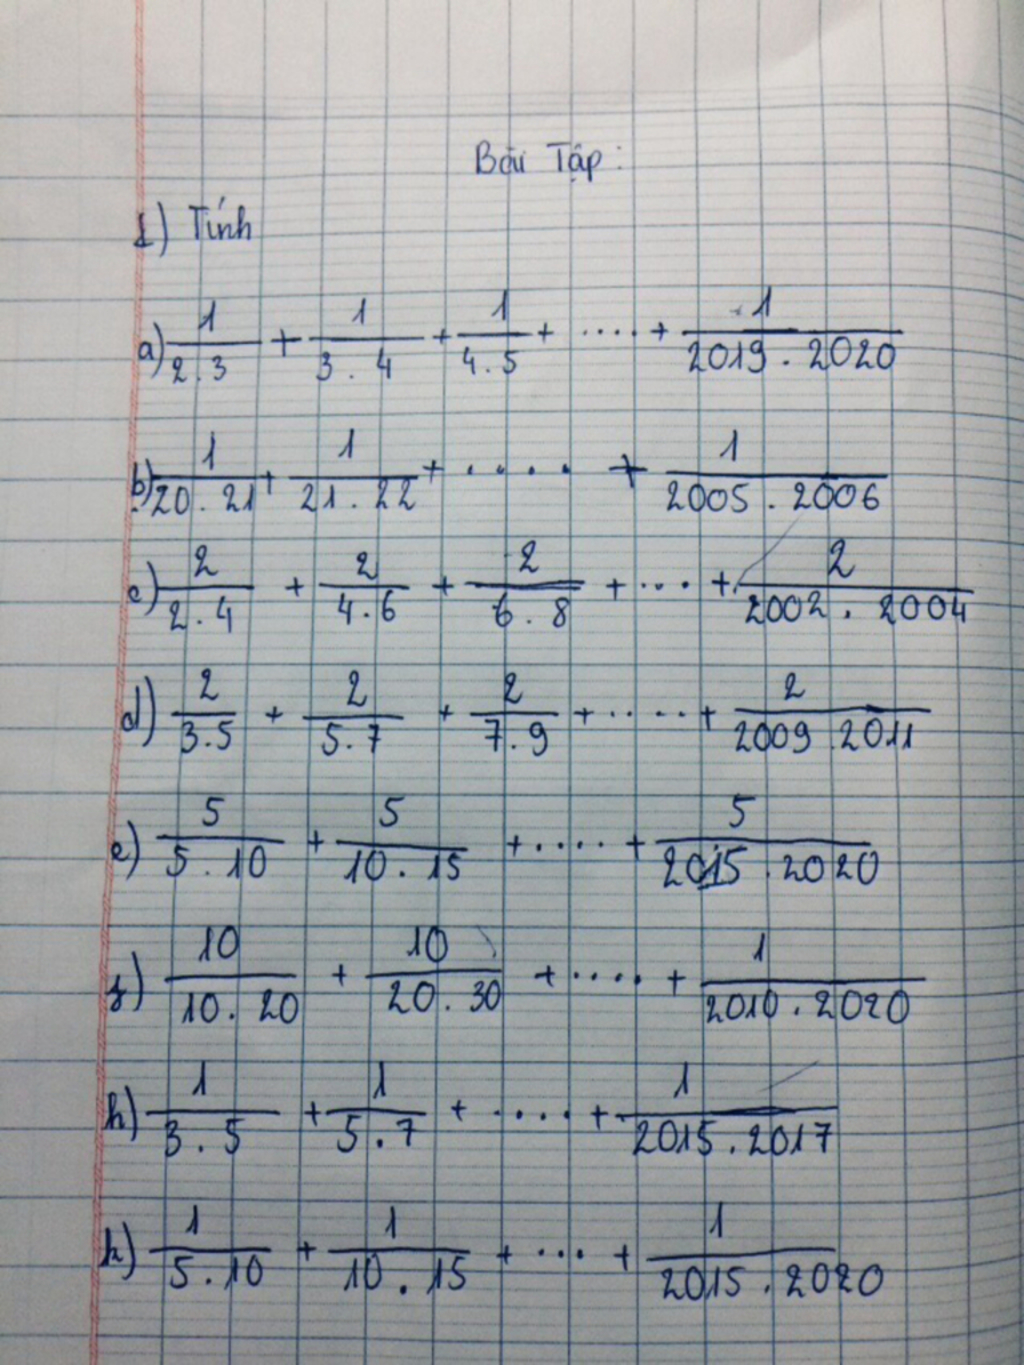 Bài Tập:
1) Tính
a) 1/2.3 + 1/3.4 + 1/4.5 + .... + 1/2019.2020
b) 1/20.21 + 1/21.22 + .... + 1/2005.2006
c) 2/2.4 + 2/4.6 + 2/6.8 + .... + 2/2002.2004
d) 2/3.5 + 2/5.7 + 2/7.9 + ..... + 2/2009.2011
e) 5/5.10 + 5/10.15 + ..... + 5/2015.2020
f) 10/10.20 + 10/20.30 + ..... + 1/2010.2020
h) 1/3.5 + 1/5.7 + ..... + 1/2015.2017
k) 1/5.10 + 1/10.15 + .... + 1/2015.2020